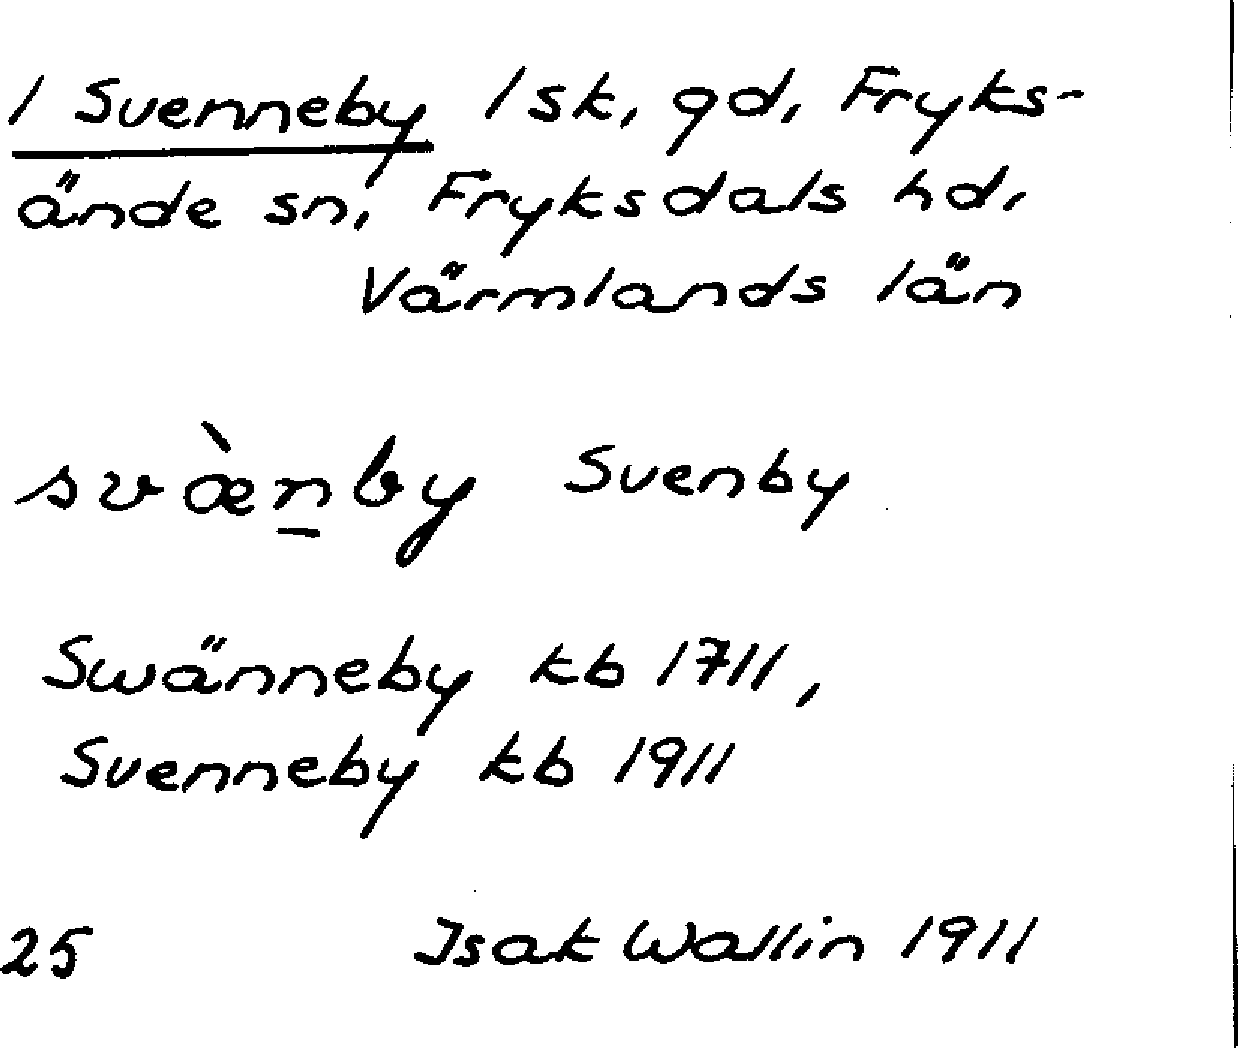 1 Svenneby 1 sk, gd, Fryks-
ände sn, Fryksdals hd,
Värmlands län
svæ̀n̲by Svenby
Swänneby kb 1711,
Svenneby kb 1911
25 Isak Wallin 1911